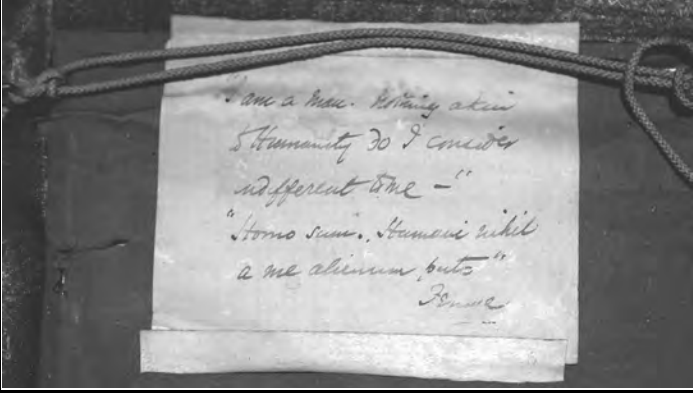 "I am a man. Nothing akin
to Humanity do I consider
indifferent to me -"
"Homo sum. Humani nihil
a me alienum puto"